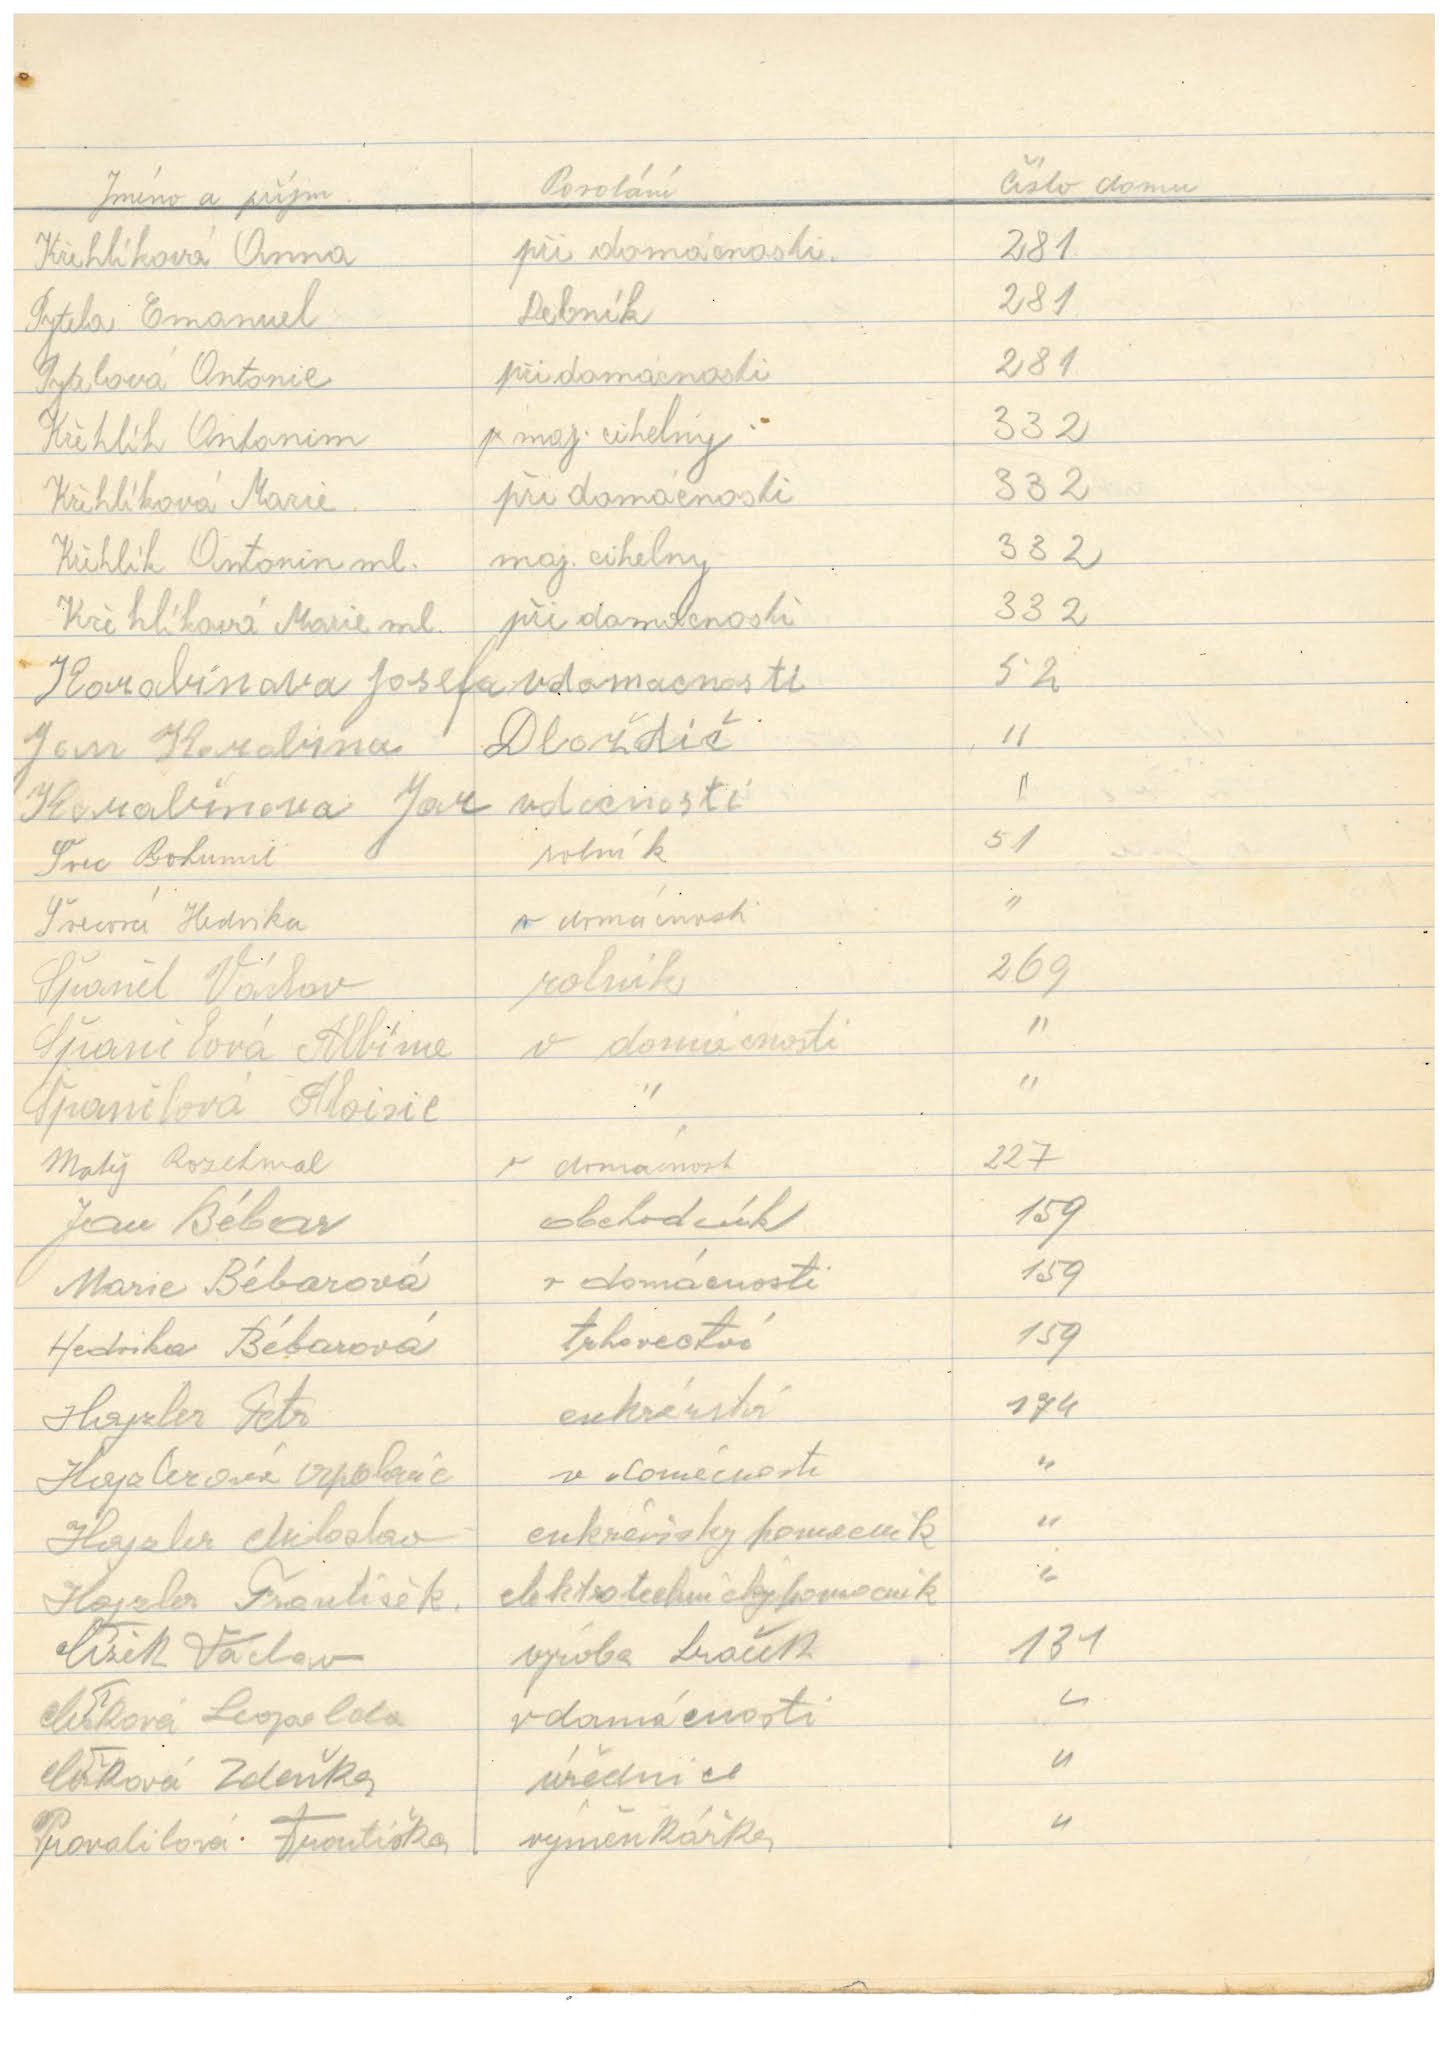 Jméno a příjm. Povolání Číslo domu
Křehlíková Anna při domácnosti. 281
Pytela Emanuel Dělník 281
Pytelová Antonie při domácnosti 281
Křehlík Antonim maj. cihelny 332
Křehlíková Marie při domácnosti 332
Křehlík Antonin ml. maj. cihelny 332
Křehlíková Marie ml. při domácnosti 332
Karabinava Josefa vdomacnosti 52
Jan Karabina Dlaždič "
Karabinova Jar vdocnosti "
Švec Bohumil rolník 51
Švecová Hedvika v domácnosti "
Španěl Václav rolník 269
Španělová Albína v domácnosti "
Španělová Aloisie " "
Malý v domácnosti 227
Jan Bébar obchodník 159
Marie Bébarová v domácnosti 159
Hedvika Bébarová trhovectví 159
Hajzler Petr cukrářství 174
Hajzlerová v domácnosti "
Hajzler Miloslav cukrářský pomocník "
Hajzler František. elektrotechnický pomocník "
Mísek Václav výroba hraček 131
Mísková Leopolda v domácnosti "
Mísková Zdeňka úřednice "
Provalilová Františka výměnkářka "